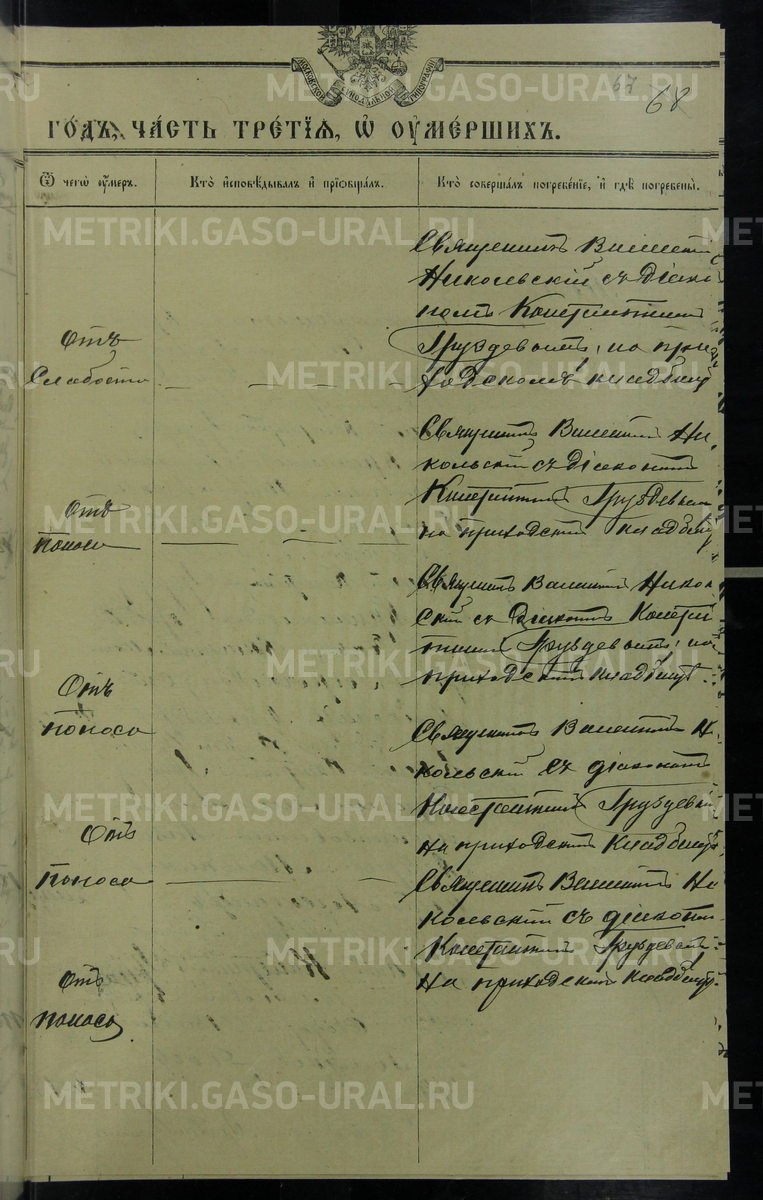 67
68
МОСКОВСКОЙ СИНОДАЛЬНОЙ ТИПОГРАФІИ
го́дъ, ча́сть тре́тїѧ, ѡ҆ ᲂу҆ме́ршихъ.
Ѿ чегѡ̀ ᲂу҆́меръ.
Кто̀ и҆сповѣ́дывалъ и҆ прїѡбща́лъ.
Кто̀ соверша́лъ погребе́нїе, и҆ гдѣ̀ погребены̀.
Отъ
Слабости
Священникъ
Никольскій съ Діако-
номъ Константином
Груздевымъ, на при-
ходскомъ кладбищѣ
Отъ
поноса
Священникъ Ни-
кольскій съ діаконом
Константином Груздевым
на приходском кладбищѣ
Отъ
поноса
Священникъ Николь-
скій съ Діаконом Констан-
тином Груздевымъ, на
приходском кладбищѣ.
Отъ
поноса
Священникъ Ни-
кольскій съ діаконом
Константином Груздевым
на приходском кладбищѣ.
Отъ
поноса
Священникъ Ни-
кольскій съ діаконом
Константином Груздевым
на приходском кладбищѣ.
METRIKI.GASO-URAL.RU